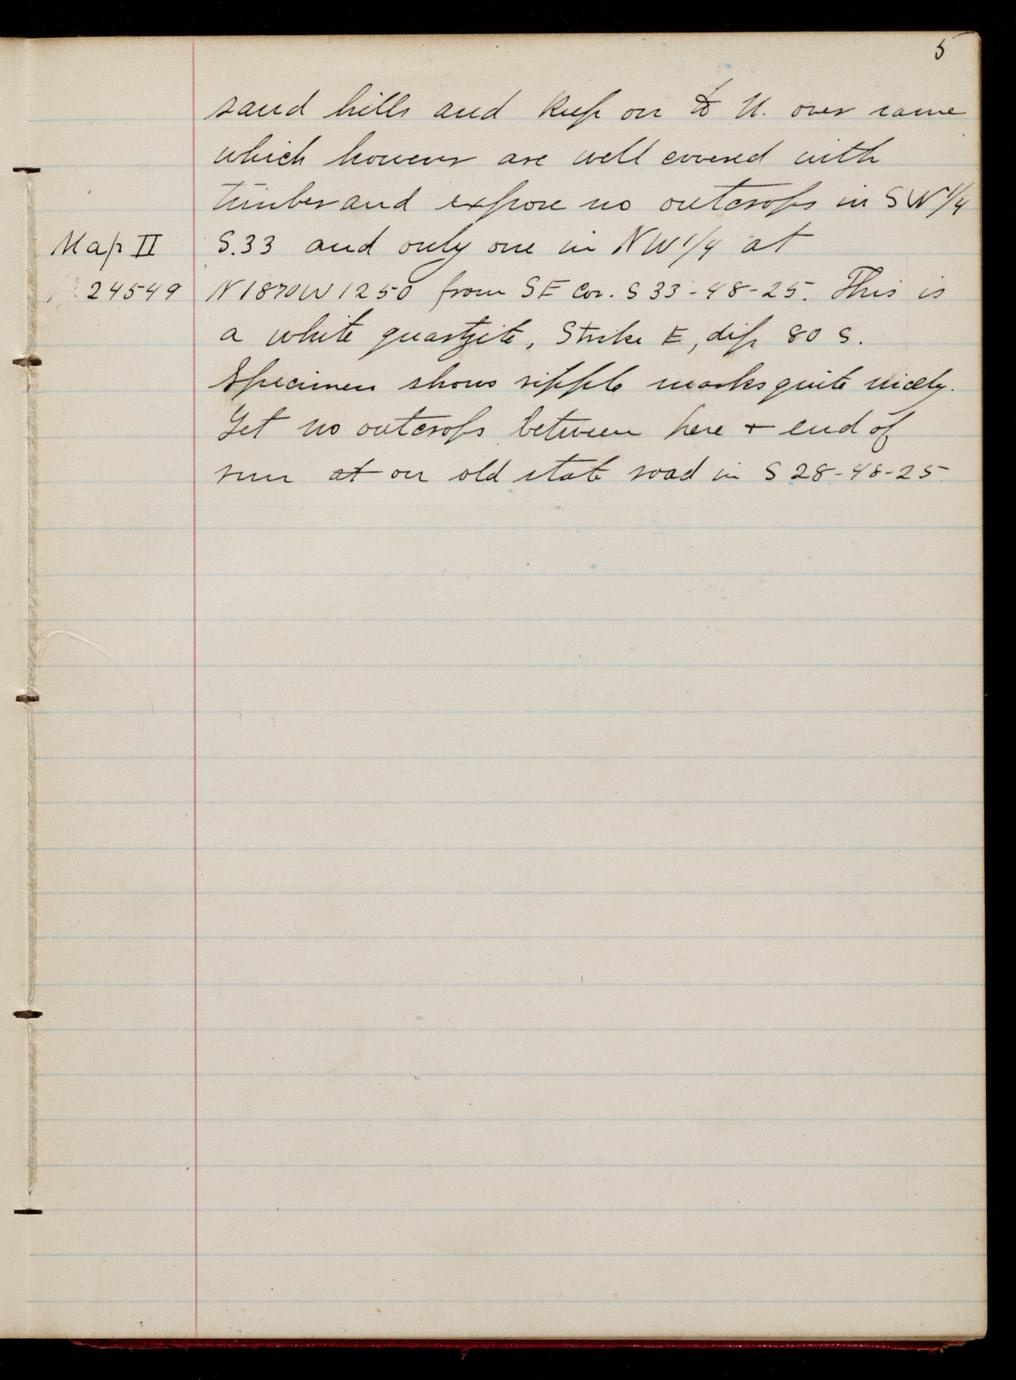 5
sand hills and keep on to N. over same
which however are well covered with
timber and expose no outcrops in SW 1/4
Map II S.33 and only one in NW 1/4 at
24549 N1870W1250 from SE Cor. S 33-48-25. This is
a white quartzite, Strike E, dip 80 S.
Specimen shows ripple marks quite nicely.
Get no outcrops between here + end of
run at on old state road in S 28-48-25